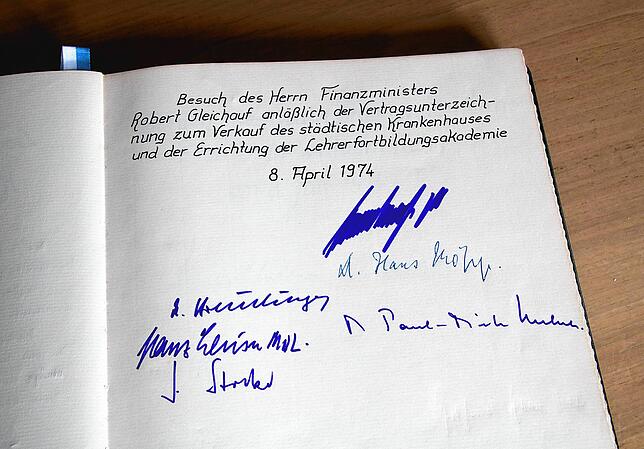 Besuch des Herrn Finanzministers
Robert Gleichauf anläßlich der Vertragsunterzeich-
nung zum Verkauf des städtischen Krankenhauses
und der Errichtung der Lehrerfortbildungsakademie
8. April 1974
Hans
Paul-
MdL.